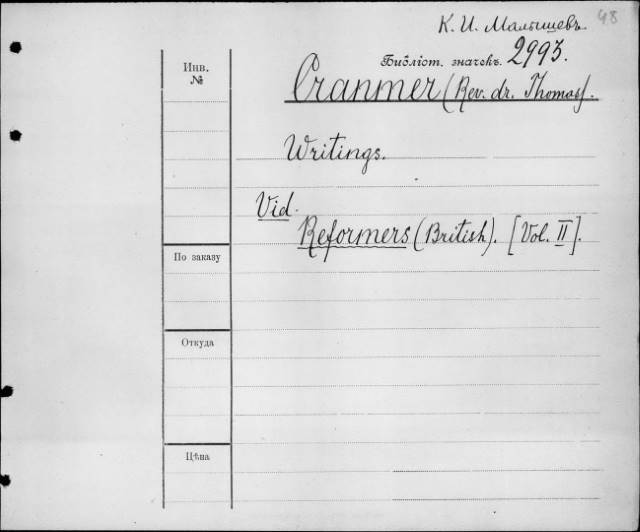 48
К. И. Малышевъ.
Библіот. значекъ. 2993.
Инв.
№
Cranmer (Rev. dr. Thomas).
Writings.
Vid.
Reformers (British). [Vol. II].
По заказу
Откуда
Цѣна